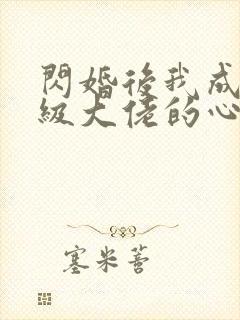 閃婚後我成
級大佬的心
塞米蒈